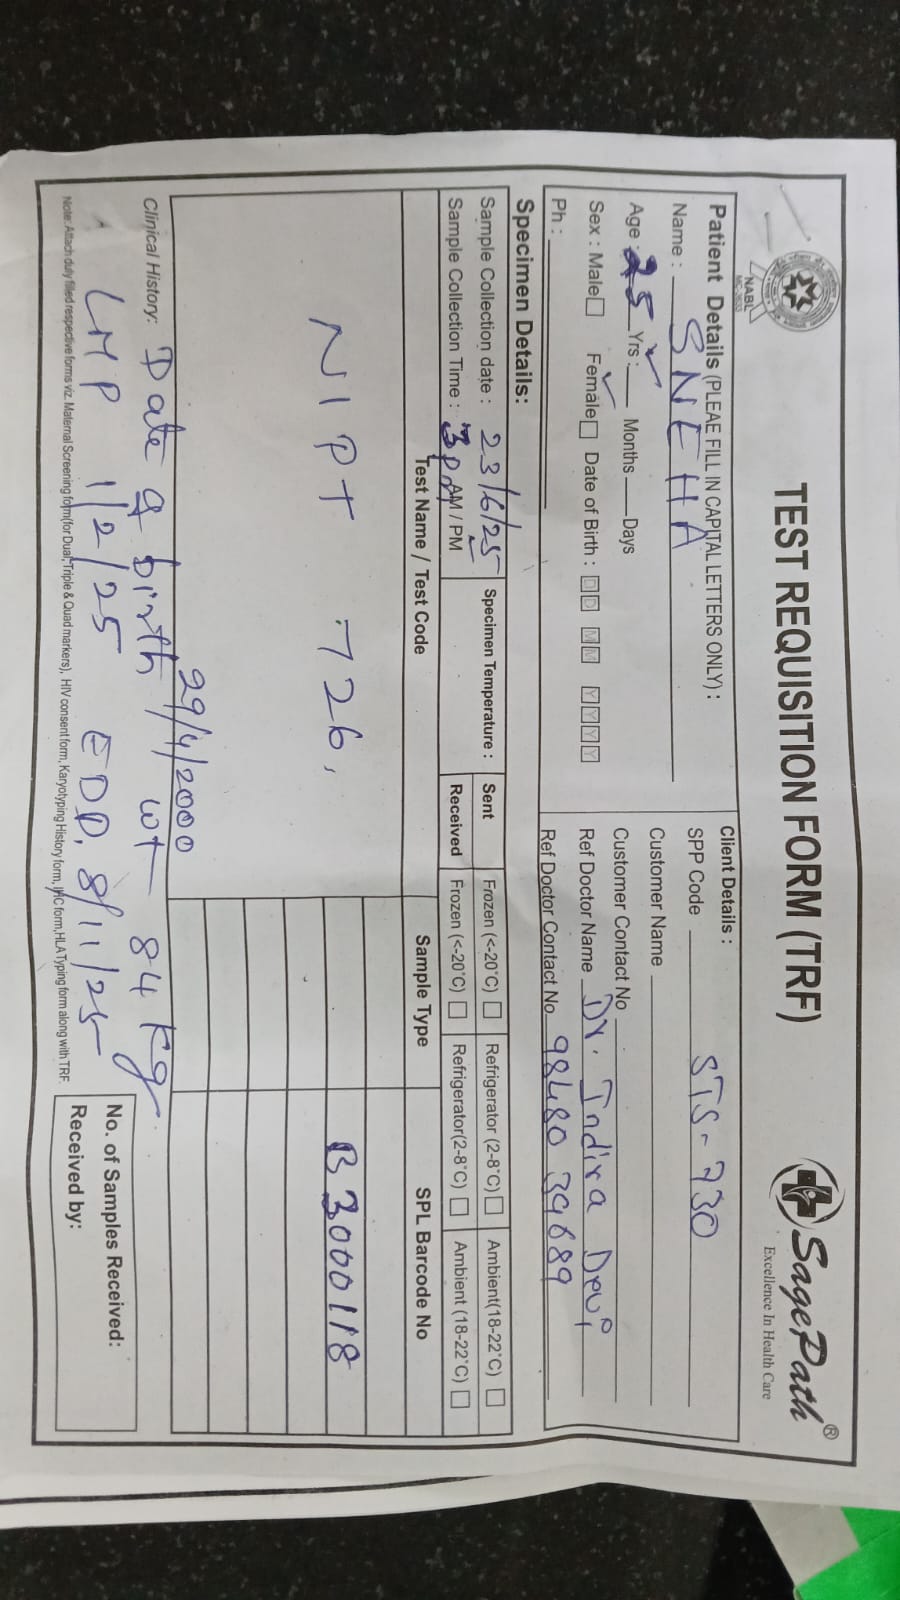 TEST REQUISITION FORM (TRF)
NABL
SagePath®
Excellence In Health Care
Patient Details (PLEAE FILL IN CAPITAL LETTERS ONLY) :
Name : SNEHA
Age : 25 Yrs : Months Days
Sex : Male Female Date of Birth : DD MM YYYY
Ph :
Client Details :
SPP Code STS-730
Customer Name
Customer Contact No
Ref Doctor Name Dr. Indira Devi
Ref Doctor Contact No 98480 39689
Specimen Details:
Sample Collection date : 23/6/25
Sample Collection Time : 3 pm AM / PM
Specimen Temperature :
Sent Frozen (<-20°C) Refrigerator (2-8°C) Ambient(18-22°C)
Received Frozen (<-20°C) Refrigerator(2-8°C) Ambient (18-22°C)
Test Name / Test Code Sample Type SPL Barcode No
NIPT 726, B3000118
29/4/2000
Clinical History: Date of birth / wt 84 kg.
LMP 1/2/25 EDD. 8/11/25
Note: Attach duly filled respective forms viz. Maternal Screening form(for Dual,Triple & Quad markers), HIV consent form, Karyotyping History form, IHC form,HLA Typing form along with TRF.
No. of Samples Received:
Received by: